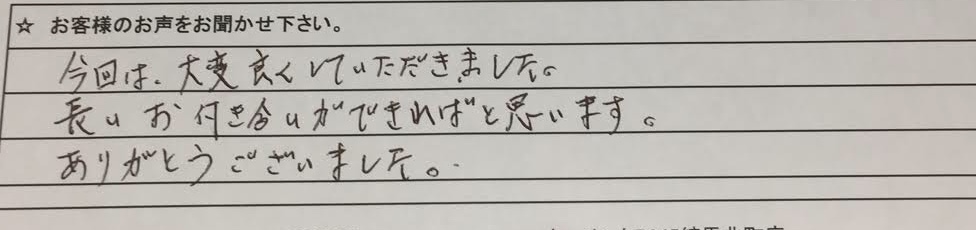 ☆ お客様のお声をお聞かせ下さい。
今回は、大変良くしていただきました。
長いお付き合いができればと思います。
ありがとうございました。